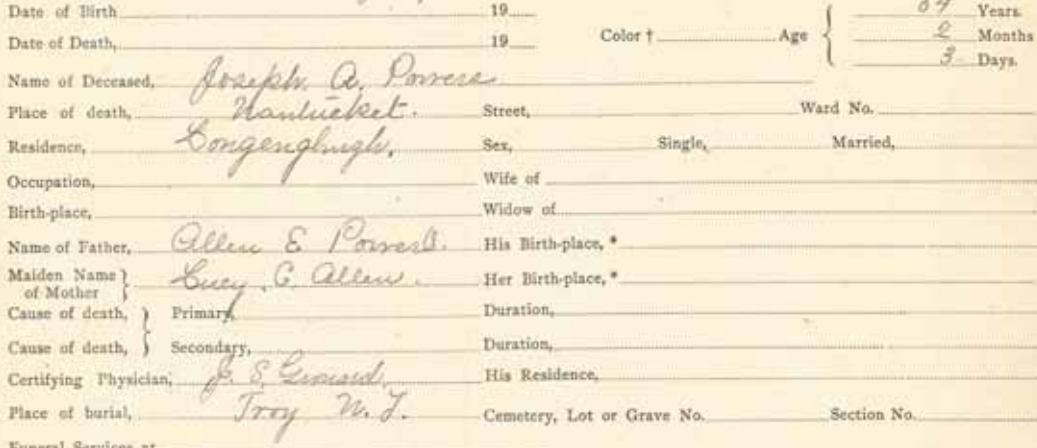 Date of Birth 19 Years.
Date of Death, 19 Color † Age 2 Months
3 Days.
Name of Deceased, Joseph. A. Powers
Place of death, Nantucket. Street, Ward No.
Residence, Sex, Single, Married,
Occupation, Wife of
Birth-place, Widow of
Name of Father, Allen E Powers. His Birth-place, *
Maiden Name of Mother Lucy. C. Allen. Her Birth-place, *
Cause of death, Primary, Duration,
Cause of death, Secondary, Duration,
Certifying Physician, J. S. His Residence,
Place of burial, Troy N. Y. Cemetery, Lot or Grave No. Section No.
Funeral Services at